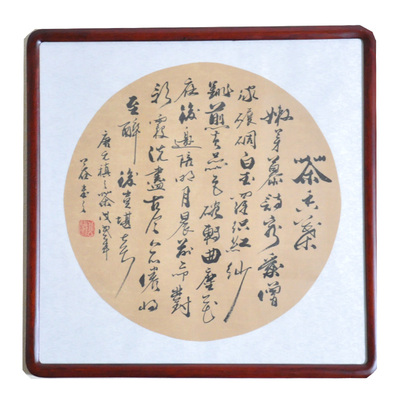 茶香葉
嫩芽慕詩客愛僧
家碾雕白玉羅織紅紗
銚煎黄蕊色碗轉曲塵花
夜後邀陪明月晨前命對
朝霞洗盡古今人不倦將
至醉後豈堪夸
唐元稹之茶